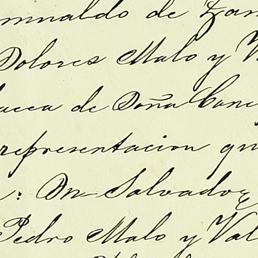 de Zam
Dolores Malo y V
de Doña Conc
representacion qu
: Dn Salvador
Pedro Malo y Val